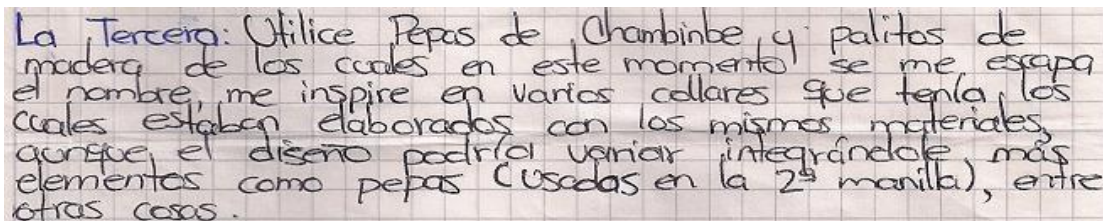 La Tercera: Utilice Pepas de Chambinbe, y palitos de
madera de los cuales en este momento se me escapa
el nombre, me inspire en varios collares que tenía, los
cuales estaban elaborados con los mismos materiales,
aunque, el diseño podría variar integrándole, más
elementos como pepas (usadas en la 2ª manilla), entre
otras cosas.